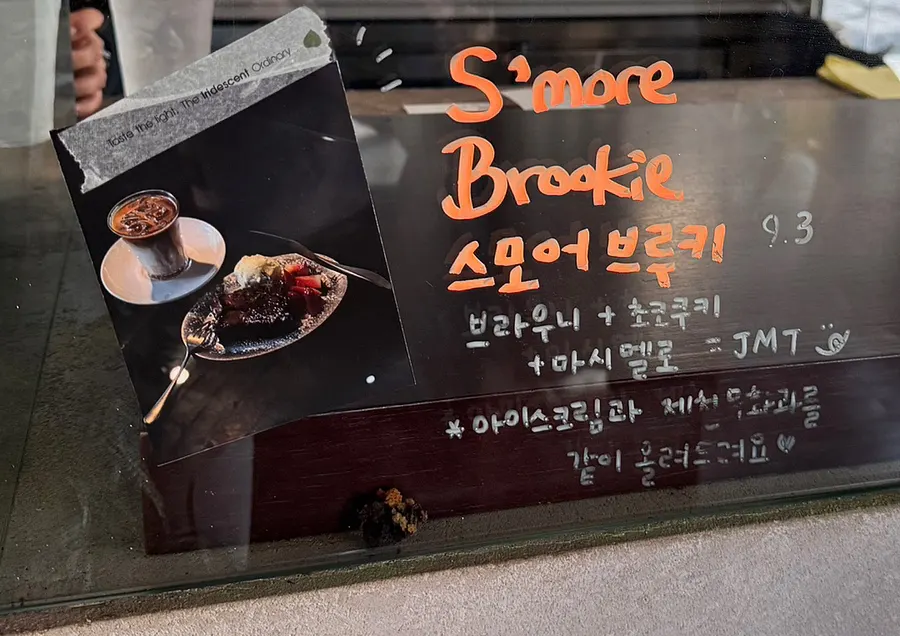 Taste the light, The Iridescent Ordinary
S'more
Brookie
스모어 브루키 9.3
브라우니 + 초코쿠키
+ 마시멜로 = JMT
* 아이스크림과 제철 무화과를
같이 올려드려요♡